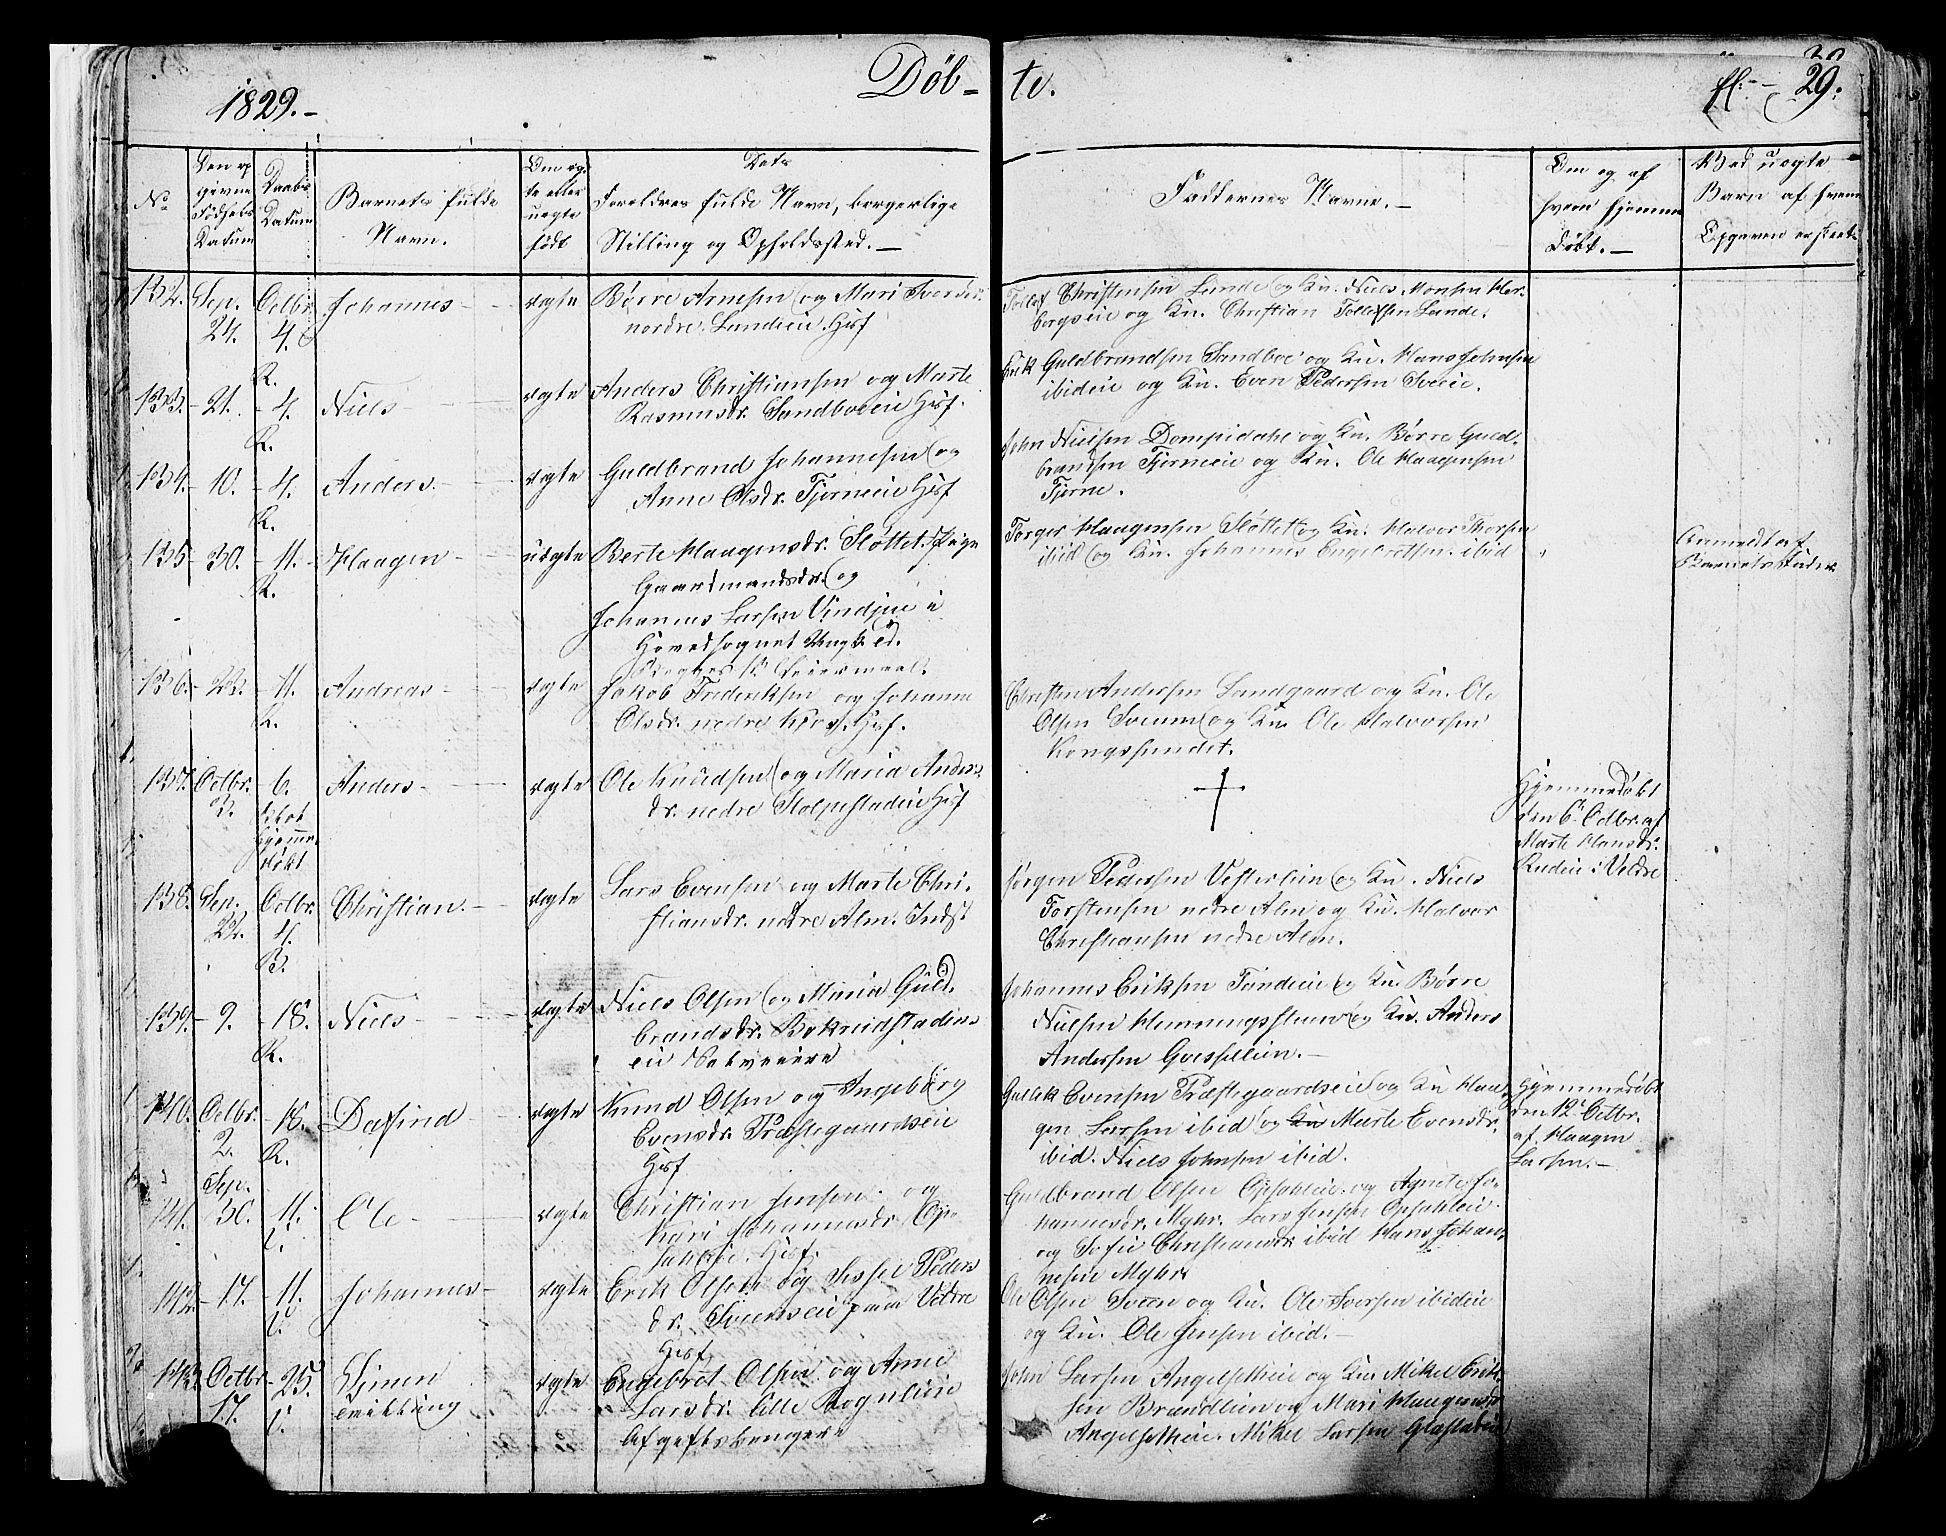 1829.-
Döb-
te.
29.
No
Den op
givne
Födsels
Datum
Daabs
Datum
Barnets fulde
Navn.
Om æg
te eller
uegte
födt
Dets
Foreldres fulde Navn, borgerlige
Stilling og Opholdssted.-
Faddernes Navne.-
Om og af
hvem hjemme
Döbt.-
Ved uegte
Barn af hvem
Opgaven er skeet.
132.
Sep.
24.
Octbr.
4.
R.
Johannes
ægte
Börre Arnesen og Mari Iversdr.
nordre Lundeie Hsf
Tollef Christensen Lunde og Kn. Niels Monsen
og Kn. Christian Tollefsen Lunde.
133.
- 21.
- 4.
R.
Niels
ægte
Anders Christiansen og Marte
Rasmusdr. Sandboeeie Hsf.
Erik Guldbrandsen Sandboe og Kn. Hans Johnsen
ibideie og Kn. Even Pedersen Sveeie.
134.
- 10.
- 4.
R.
Anders.
ægte
Guldbrand Johannesen og
Anne Olsdr. Tjerneeie Hsf
John Nielsen Dompidahl og Kn. Börre Guld-
brandsen Tjerneeie og Kn. Ole Haagensen
Tjerne.
135
- 30.
- 11.
R.
Haagen
uegte
Berte Haagensdr. Slöttet Pige
Gaardmandsdr. og
Johannes Larsen Vindjueie i
Hovedsognet Ungk.
Torger Haagensen Slöttet og Kn. Halvor Thorsen
ibid og Kn. Johannes Engebretsen ibid
Anmeldt af
Barnets Fader
136.
- 22.
- 11.
R.
Andreas
ægte
Jakob Frederiksen og Johanne
Olsdr. nedre Hsf.
Christen Andersen Sandgaard og Kn. Ole
Olsen Sveum og Kn. Ole Halvorsen
Kongssundet.
137.
Octbr.
2.
6.
hjemme
döbt
Anders
ægte
Ole Knudsen og Maria Anders-
dr. nedre Stolpestadeie Hsf
Hjemmedöbt
den 6te Octbr. af
Marte Hansdr.
Rudeie i Veldre
138.
Sep.
22.
Octbr.
4.
B.
Christian.
ægte
Lars Evensen og Marte Chri-
stiansdr. nedre Alm. Indst
Jörgen Pedersen Vesterlien og Kn. Niels
Torstensen nedre Alm og Kn. Halvor
Christiansen nedre Alm.
139.
- 9.
- 18.
R.
Niels
ægte
Niels Olsen og Maria Guld-
brandsdr.
eie
Johannes Eriksen og Kn. Börre
Nielsen Hemmingstuen og Kn. Anders
Andersen
140.
Octbr.
2.
- 18.
R.
Dafind
ægte
Knud Olsen og Ingeborg
Evensdr. Præstegaardseie
Hsf
Gullik Evensen Præstegaardseie og Kn Haa-
gen Larsen ibid og Kn Marte Evensdr.
ibid. Niels Johnsen ibid.
Hjemmedöbt
den 12te Octbr.
af Haagen
Larsen.-
141.
Sep.
30.
11.
Ole
ægte
Christian Jensen og
Kari Johannesdr Op-
sahleie Hsf.
Guldbrand Olsen Opsahleie og Agnete Jo-
hannesdr. Myhr. Lars Jensen Opsahleie
og Sofie Christiansdr ibid Hans Johan-
nesen Myhr.
142.
- 17.
11.
Johannes
ægte
Erik Olsen og Sissel Peders
dr. Sveenseie paa Veldre
Hsf
Ole Olsen Sveen og Kn. Ole Iversen ibideie
og Kn. Ole Jensen ibid.
143.
Octbr
17.
- 25.
Simen
Tvilling
ægte
Engebret Olsen og Anne
Larsdr. Lille Rognlieie
John Larsen og Kn Mikel Erik-
sen Brandlien og Mari Haagensdr
Mikel Larsen